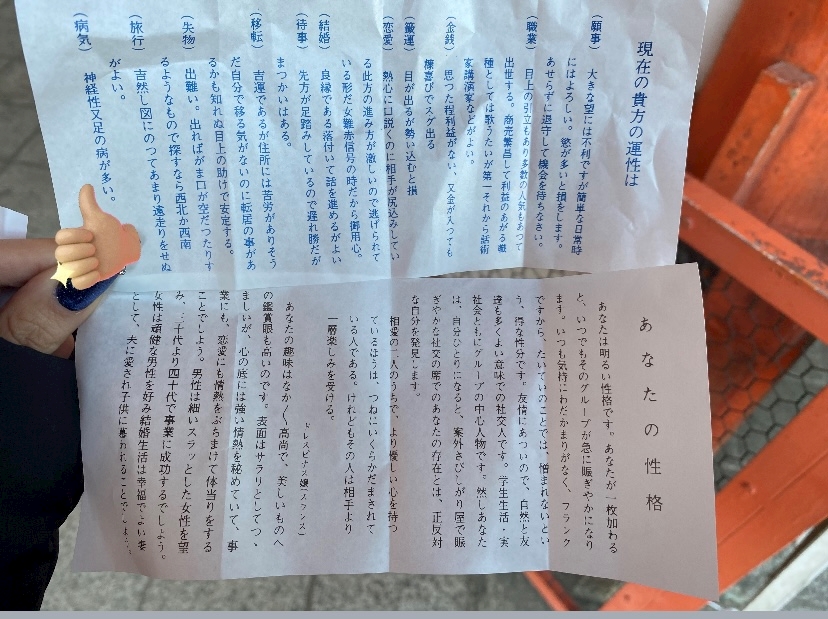 現在の貴方の運性は
(願事) 大きな望には不利ですが簡単な日常時
にはよろしい。慾が多いと損をします。
あせらずに退守して機会を待ちなさい。
(職業) 目上の引立もあり多数の人気もあつて
出世する。商売繁昌して利益のあがる職
種としては歌うたいが第一それから話術
家講演家などがよい。
(金銭) 思つた程利益がない、又金が入つても
糠喜びでスグ出る
(籤運) 目が出るが勢い込むと損
(恋愛) 熱心に口説くのに相手が尻込みしてい
る此方の進み方が激しいので逃げられて
いる形だ女難赤信号の時だから御用心。
(結婚) 良縁である落付いて話を進めるがよい
(待事) 先方が足踏みしているので遅れ勝だが
まつかいはある。
(移転) 吉運であるが住所には苦労がありそう
だ自分で移る気がないのに転居の事があ
るかも知れぬ目上の助けで安定する。
(失物) 出難い。出ればがま口が空だつたりす
るようなもので探すなら西北か西南
(旅行) 吉然し図にのつてあまり遠走りをせぬ
がよい。
(病気) 神経性又足の病が多い。
あなたの性格
あなたは明るい性格です。あなたが一枚加わる
と、いつでもそのグループが急に賑ぎやかになり
ます。いつも気持にわだかまりがなく、フランク
ですから、たいていのことでは、憎まれないとい
う、得な性分です。友情にあついので、自然と友
達も多くよい意味での社交人です。学生生活・実
社会ともにグループの中心人物です。然しあなた
は、自分ひとりになると、案外さびしがり屋で賑
ぎやかな社交の席でのあなたの存在とは、正反対
な自分を発見します。
相愛の二人のうちで、より優しい心を持つ
ているほうは、つねにいくらかだまされて
いる人である。けれどもその人は相手より
一層楽しみを受ける。
レスピナス嬢(フランス)
あなたの趣味はなか〳〵高尚で、美しいものへ
の鑑賞眼も高いのです。表面はサラリとしてつゝ
ましいが、心の底には強い情熱を秘めていて、事
業にも、恋愛にも情熱をぶちまけて体当りをする
ことでしよう。男性は細いスラッとした女性を望
み、三十代より四十代で事業に成功するでしよう。
女性は頑健な男性を好み結婚生活は幸福でよい妻
として、夫に愛され子供に慕われることでしよう。